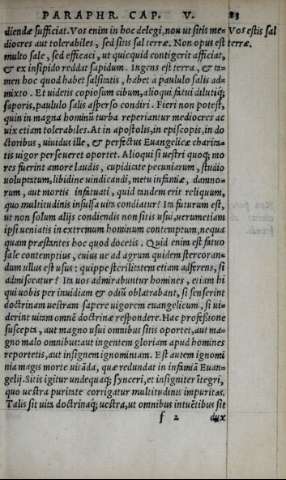 PARAPHR. CAP. V. 83
diendæ sufficiat. Vos enim in hoc delegi, nõ ut sitis me- Vos estis sal
diocres aut tolerabiles, sed sitis sal terræ. Non opus est terræ.
multo sale, sed efficaci, ut quicquid contigerit afficiat,
& ex insipido reddat sapidum. Ingens est terra, & ta-
men hoc quod habet salsitatis, habet à paululo salis ad-
mixto. Et uidetis copiosum cibum, alioqui fatui dilutiq;
saporis, paululo salis asperso condiri. Fieri non potest,
quin in magna hominũ turba reperiantur mediocres ac
uix etiam tolerabiles. At in apostolis, in episcopis, in do
ctoribus, uiuidus ille, & perfectus Euangelicæ charita-
tis uigor perseueret oportet. Alioqui si uestri quoq; mo
res fuerint amore laudis, cupiditate pecuniarum, studio
uoluptatum, libidine uindicandi, metu infamiæ, damno-
rum, aut mortis infatuati, quid tandem erit reliquum,
quo multitudinis insulsa uita condiatur? Ita futurum est,
ut non solum alijs condiendis non sitis usui, uerumetiam
ipsi ueniatis in extremum hominum contemptum, nequa
quam præstantes hoc quod docetis. Quid enim est fatuo
sale contemptius, cuius ne ad agrum quidem stercoran-
dum ullus est usus: quippe sterilitatem etiam adferens, si
admisceatur? Ita uos admirabuntur homines, etiam hi
qui uobis per inuidiam & odiũ oblatrabant, si senserint
doctrinam uestram sapere uigorem euangelicum, si ui-
derint uitam omnẽ doctrinæ respondere. Hac professione
suscepta, aut magno usui omnibus sitis oportet, aut ma-
gno malo omnibus: aut ingentem gloriam apud homines
reportetis, aut insignem ignominiam. Est autem ignomi
nia magis morte uitãda, quæ redundat in infamiã Euan-
gelij. Sitis igitur undequaq; synceri, et insigniter ĩtegri,
quo uestra puritate corrigatur multitudinis impuritas.
Talis sit uita doctrinaq; uestra, ut omnibus intuẽtibus sit
f 2 dux